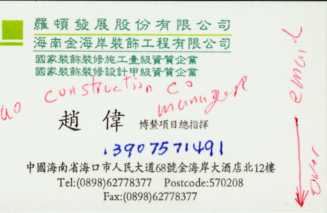 羅頓發展股份有限公司
海南金海岸裝飾工程有限公司
國家裝飾裝修施工壹級資質企業
國家裝飾裝修設計甲級資質企業
CONSTRUCTION CO
MANAGER
趙偉 博鰲項目總指揮
13907571491
中國海南省海口市人民大道68號金海岸大酒店北12樓
Tel:(0898)62778377 Postcode:570208
Fax:(0898)62778377
email
over